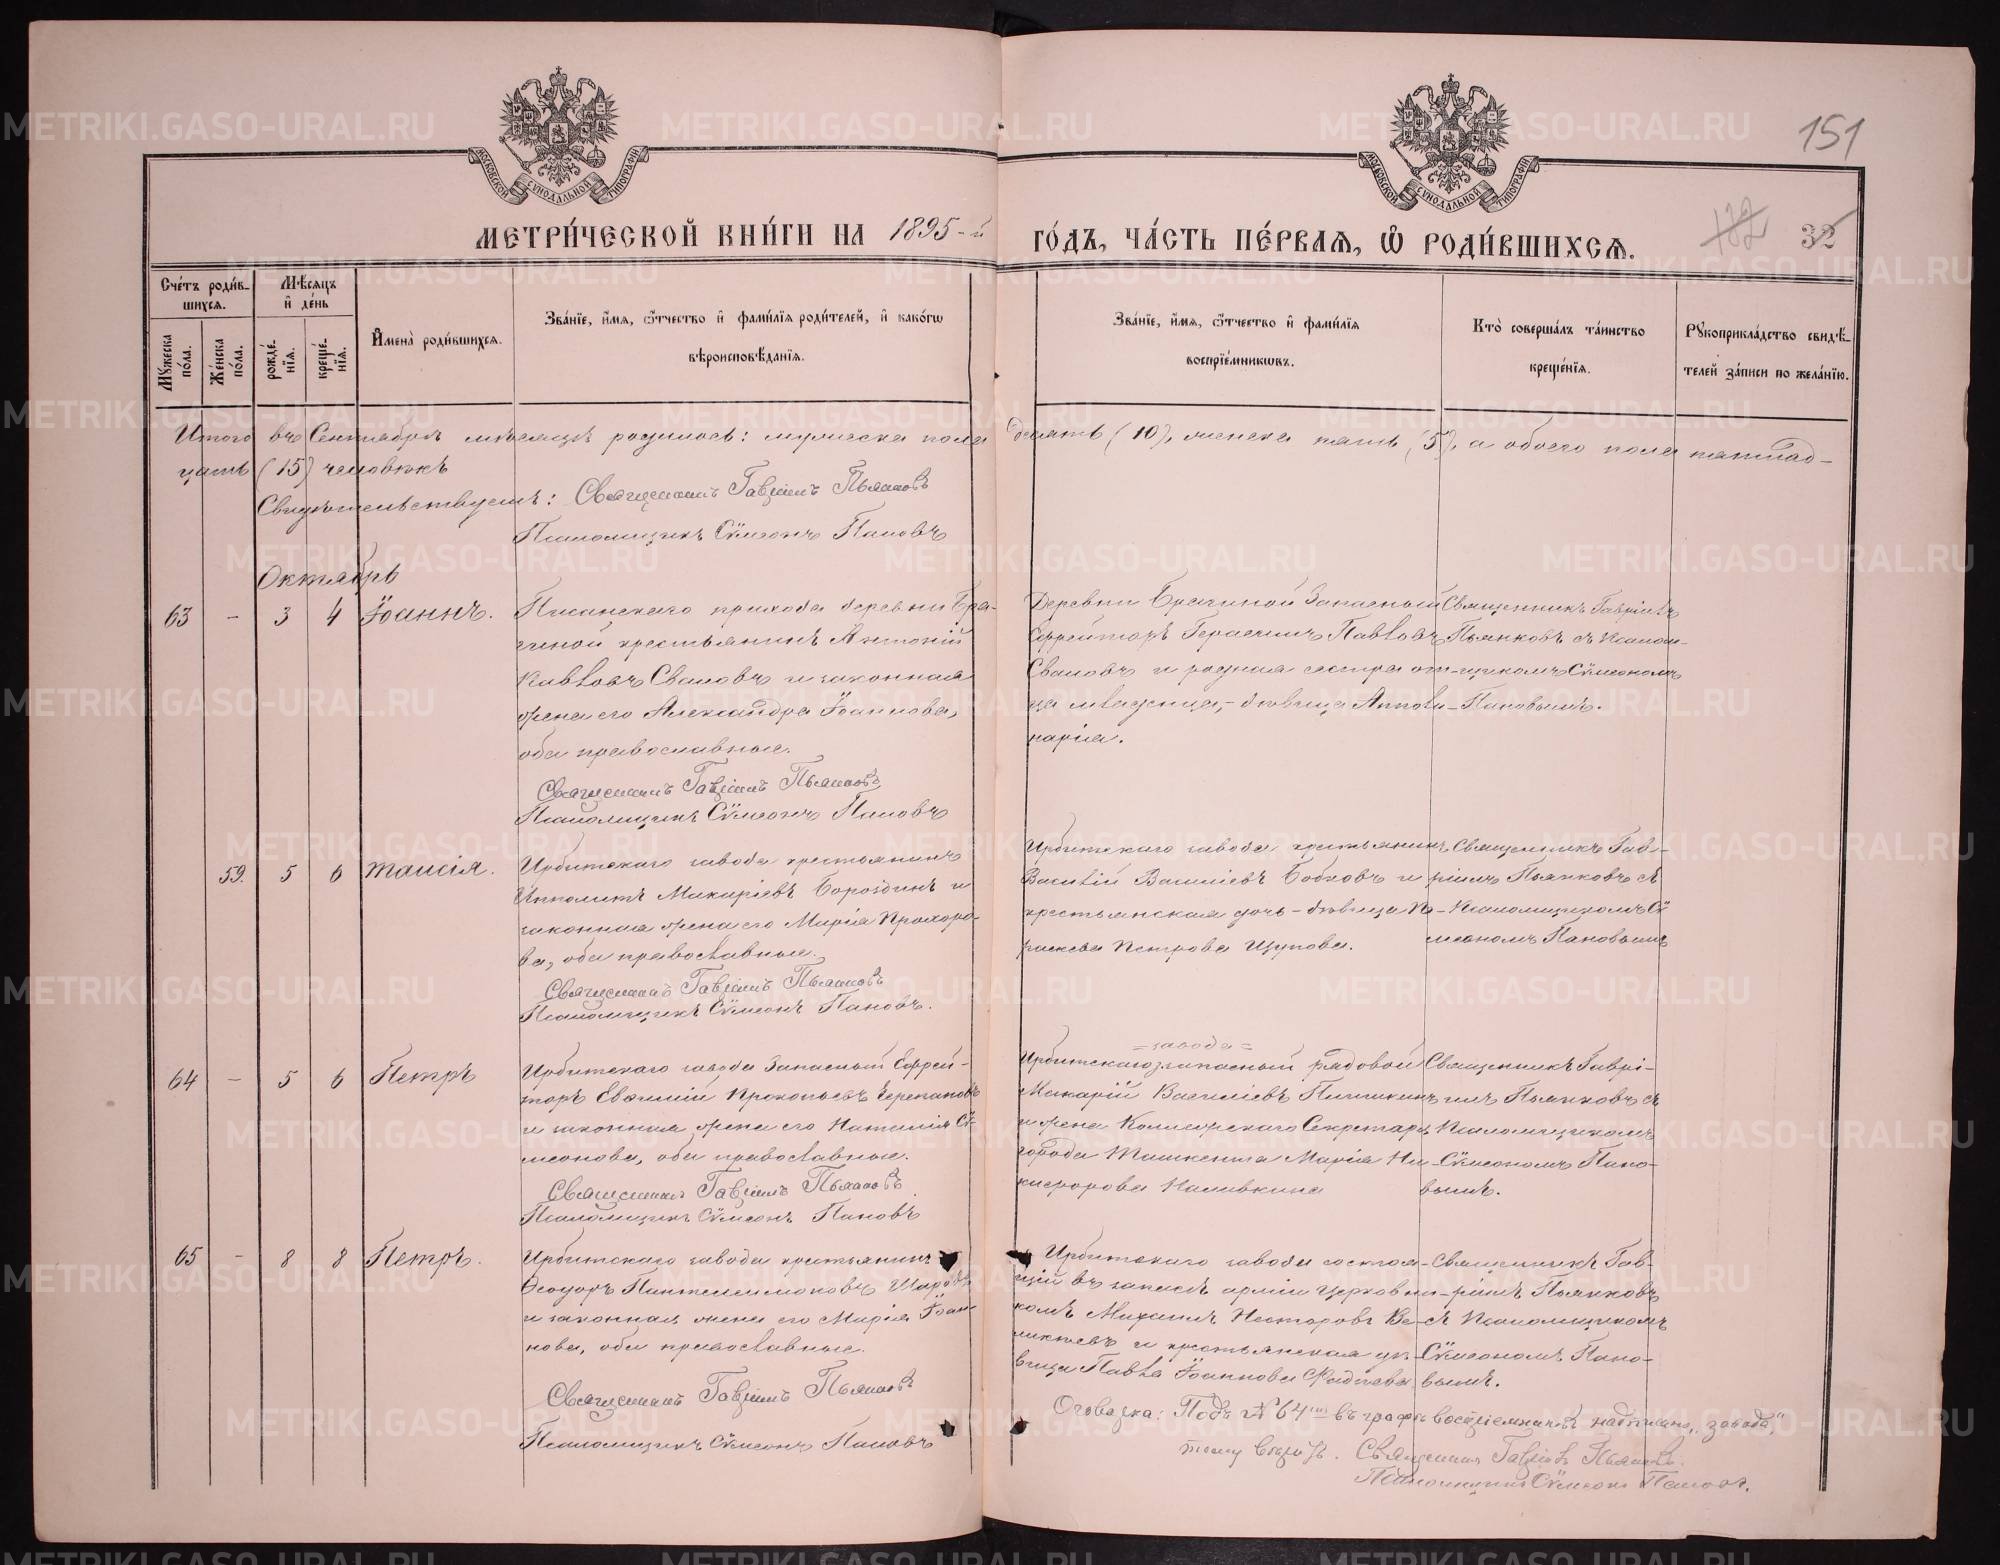 МОСКОВСКОЙ СѴНОДАЛЬНОЙ ТИПОГРАФІИ
МОСКОВСКОЙ СѴНОДАЛЬНОЙ ТИПОГРАФІИ
151
МЕТРИ́ЧЕСКОЙ КНИ́ГИ НА 1895-й
ГО́ДЪ, ЧА́СТЬ ПЕ́РВАѦ, Ѡ҆ РОДИ́ВШИХСѦ.
132 32
Сче́тъ роди́в-
шихсѧ.
Мѣ́сѧцъ
и҆ де́нь
Мꙋ́жеска по́ла.
Же́нска по́ла.
рожде́-
нїѧ.
креще́-
нїѧ.
И҆мена̀ роди́вшихсѧ.
Зва́нїе, и҆́мѧ, ѻ҆́тчество и҆ фами́лїѧ роди́телей, и҆ како́гѡ
вѣроисповѣ́данїѧ.
Зва́нїе, и҆́мѧ, ѻ҆́тчество и҆ фами́лїѧ
воспрїе́мникѡвъ.
Кто̀ соверша́лъ та́инство
креще́нїѧ.
Рꙋкоприкла́дство свидѣ́-
телей за́писи по жела́нїю.
Итого въ Сентябрѣ мѣсяцѣ родилось: мужеска пола десять (10), женска пять (5), а обоего пола пятнад-
цать (15) человѣкъ
Свидѣтельствуемъ: Священникъ Гавріилъ Пьянковъ
Псаломщикъ Сѵмеонъ Пановъ
Октябрь
63 - 3 4 Іоаннъ.
Писанскаго прихода деревни Бра-
гиной крестьянинъ Антоній
Павловъ Сваловъ и законная
жена его Александра Іоаннова,
оба православные.
Священникъ Гавріилъ Пьянковъ
Псаломщикъ Сѵмеонъ Пановъ
Деревни Брагиной Запасный
Ефрейторъ Герасимъ Павловъ
Сваловъ и родная сестра от-
ца младенца,- дѣвица Аполли-
нарія.
Священникъ Гавріилъ
Пьянковъ съ псалом-
щикомъ Сѵмеономъ
Пановымъ.
59. 5 6 Таисія.
Ирбитскаго завода крестьянинъ
Ипполитъ Макаріевъ Бороздинъ и
законная жена его Марія Прохоро-
ва, оба православные.
Священникъ Гавріилъ Пьянковъ
Псаломщикъ Сѵмеонъ Пановъ.
Ирбитскаго завода крестьянинъ
Василій Василіевъ Бобковъ и
крестьянская дочь - дѣвица Па-
раскева Петрова Щупова.
Священникъ Гав-
ріилъ Пьянковъ съ
Псаломщикомъ Сѵ-
меономъ Пановымъ
64 - 5 6 Петръ
Ирбитскаго завода Запасный Ефрей-
торъ Евгеній Прокопьевъ Черепановъ
и законная жена его Наталія Сѵ-
меонова, оба православные.
Священникъ Гавріилъ Пьянковъ
Псаломщикъ Сѵмеонъ Пановъ
=завода=
Ирбитскаго запасный рядовой
Макарій Василіевъ Пичикинъ
и жена Коллежскаго Секретаря
города Ташкента Марія Ни-
кифорова Наливкина
Священникъ Гаврі-
илъ Пьянковъ съ
Псаломщикомъ
Сѵмеономъ Пано-
вымъ.
65 - 8 8 Петръ.
Ирбитскаго завода крестьянинъ
Ѳеодоръ Пантелеимоновъ
и законная жена его Марія Іоан-
нова, оба православные.
Священникъ Гавріилъ Пьянковъ
Псаломщикъ Сѵмеонъ Пановъ
Ирбитскаго завода состоя-
щій въ запасѣ арміи церковни-
комъ Михаилъ Несторовъ Ве-
и крестьянская дѣ-
вица Павла Іоаннова Фадѣева
Священникъ Гав-
ріилъ Пьянковъ
съ Псаломщикомъ
Сѵмеономъ Пано-
вымъ.
Оговорка: Подъ № 64мъ въ графѣ воспріемниковъ надписано „завода“
тому вѣрить. Священникъ Гавріилъ Пьянковъ.
Псаломщикъ Сѵмеонъ Пановъ.
METRIKI.GASO-URAL.RU